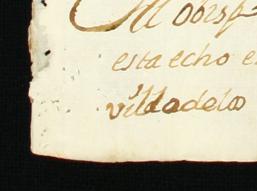 El obisp
esta echo e
villadelo